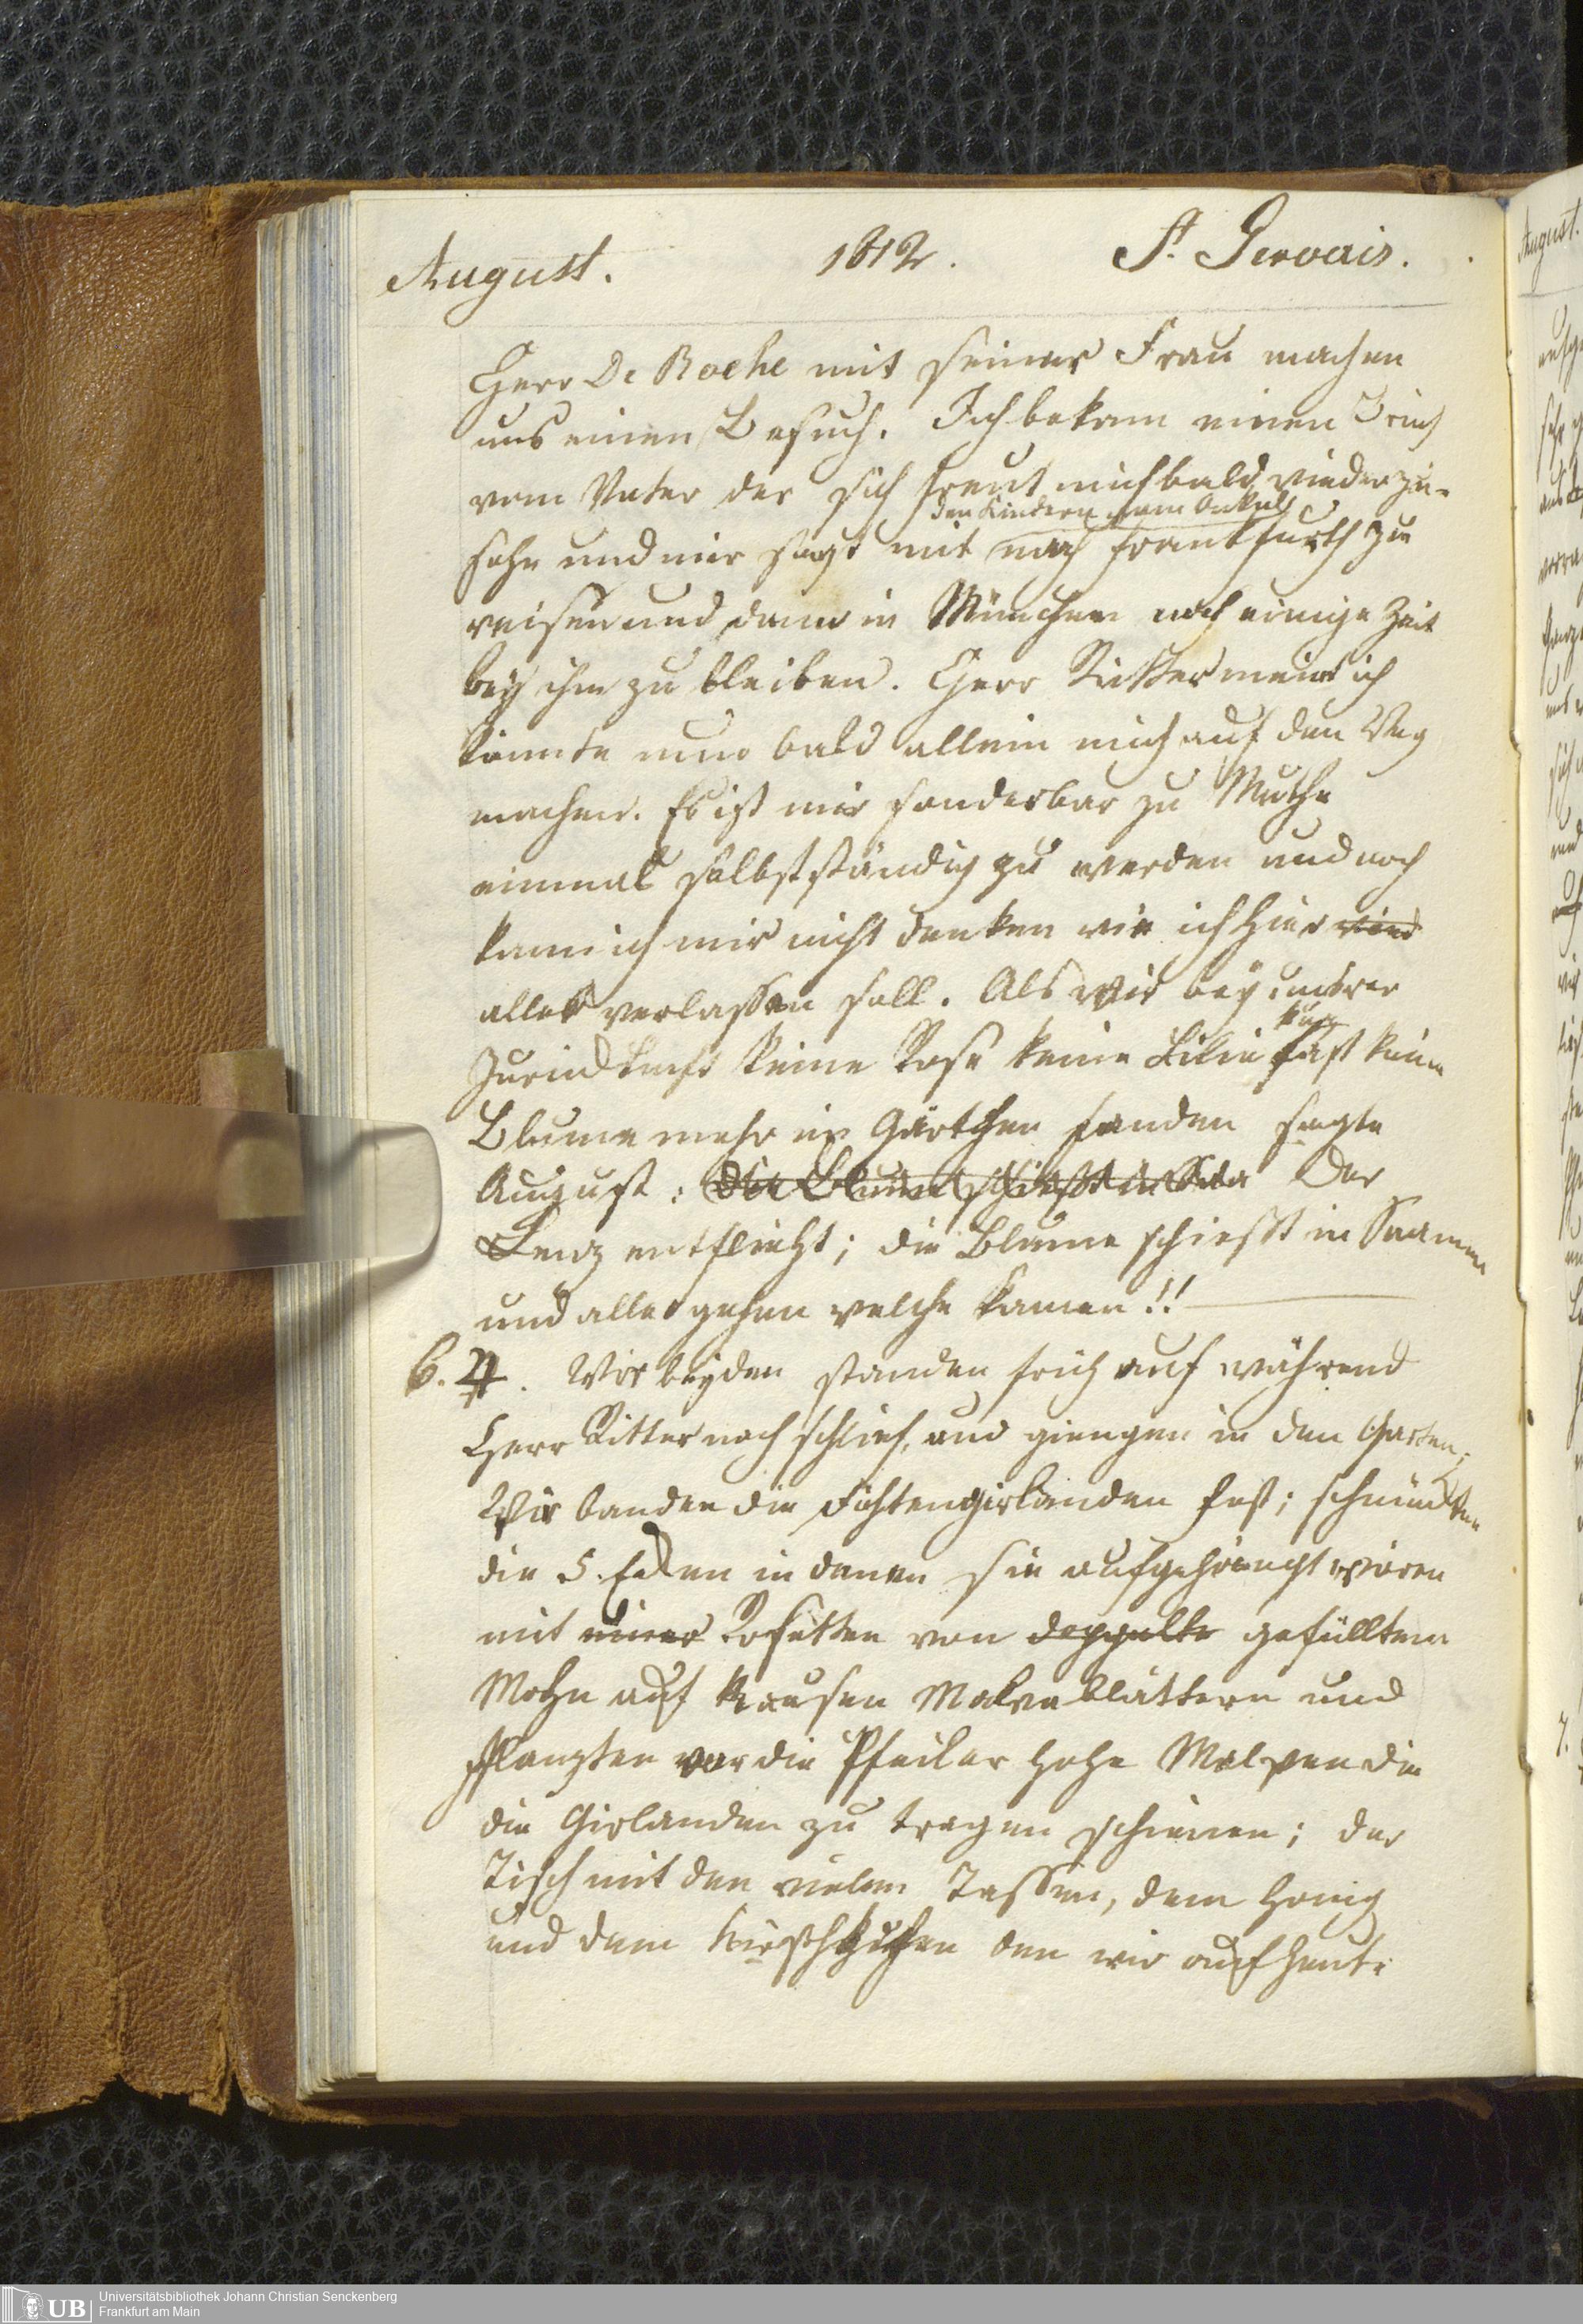 August. 1812. St. Gervais.
Herr De Roche mit seiner Frau machen
uns einen Besuch. Ich bekam einen
vom Vater der sich freut mich bald wieder zu
den Kindern vom Onkel
sehn und mir sagt mit nach Frankfurth zu
reisen und dann in München noch einige Zeit
bey ihm zu bleiben. Herr Ritter meint ich
könnte nun bald allein mich auf den Weg
machen. Es ist mir sonderbar zu Muthe
einmal selbstständig zu werden und noch
kann ich mir nicht denken wie ich hier
alles verlassen soll. Als wir bey unsrer
Zurückkunft keine Rose keine Lilie fast keine
Blume mehr im Gärtchen fanden sagte
August: die Blume schießt in Der
Lenz entflieht; die Blume schießt in Saamen
und alle gehen welche kamen!!
6. ♃. Wir beyden standen früh auf während
Herr Ritter noch schlief, und giengen in den Garten;
Wir banden die Fichtengirlanden fest; schmückten
die 5. Ecken in denen sie aufgehängt waren
mit einer Rosetten von doppelte gefülltem
Mohn auf krausen Malvablättern und
pflanzten vor die Pfeiler hohe Malven die
die Girlanden zu tragen schienen; der
Tisch mit den vielen Tassen, dem Honig
und dem Kirschkuchen den wir auf heute
August.
7.
UB Universitätsbibliothek Johann Christian Senckenberg
Frankfurt am Main